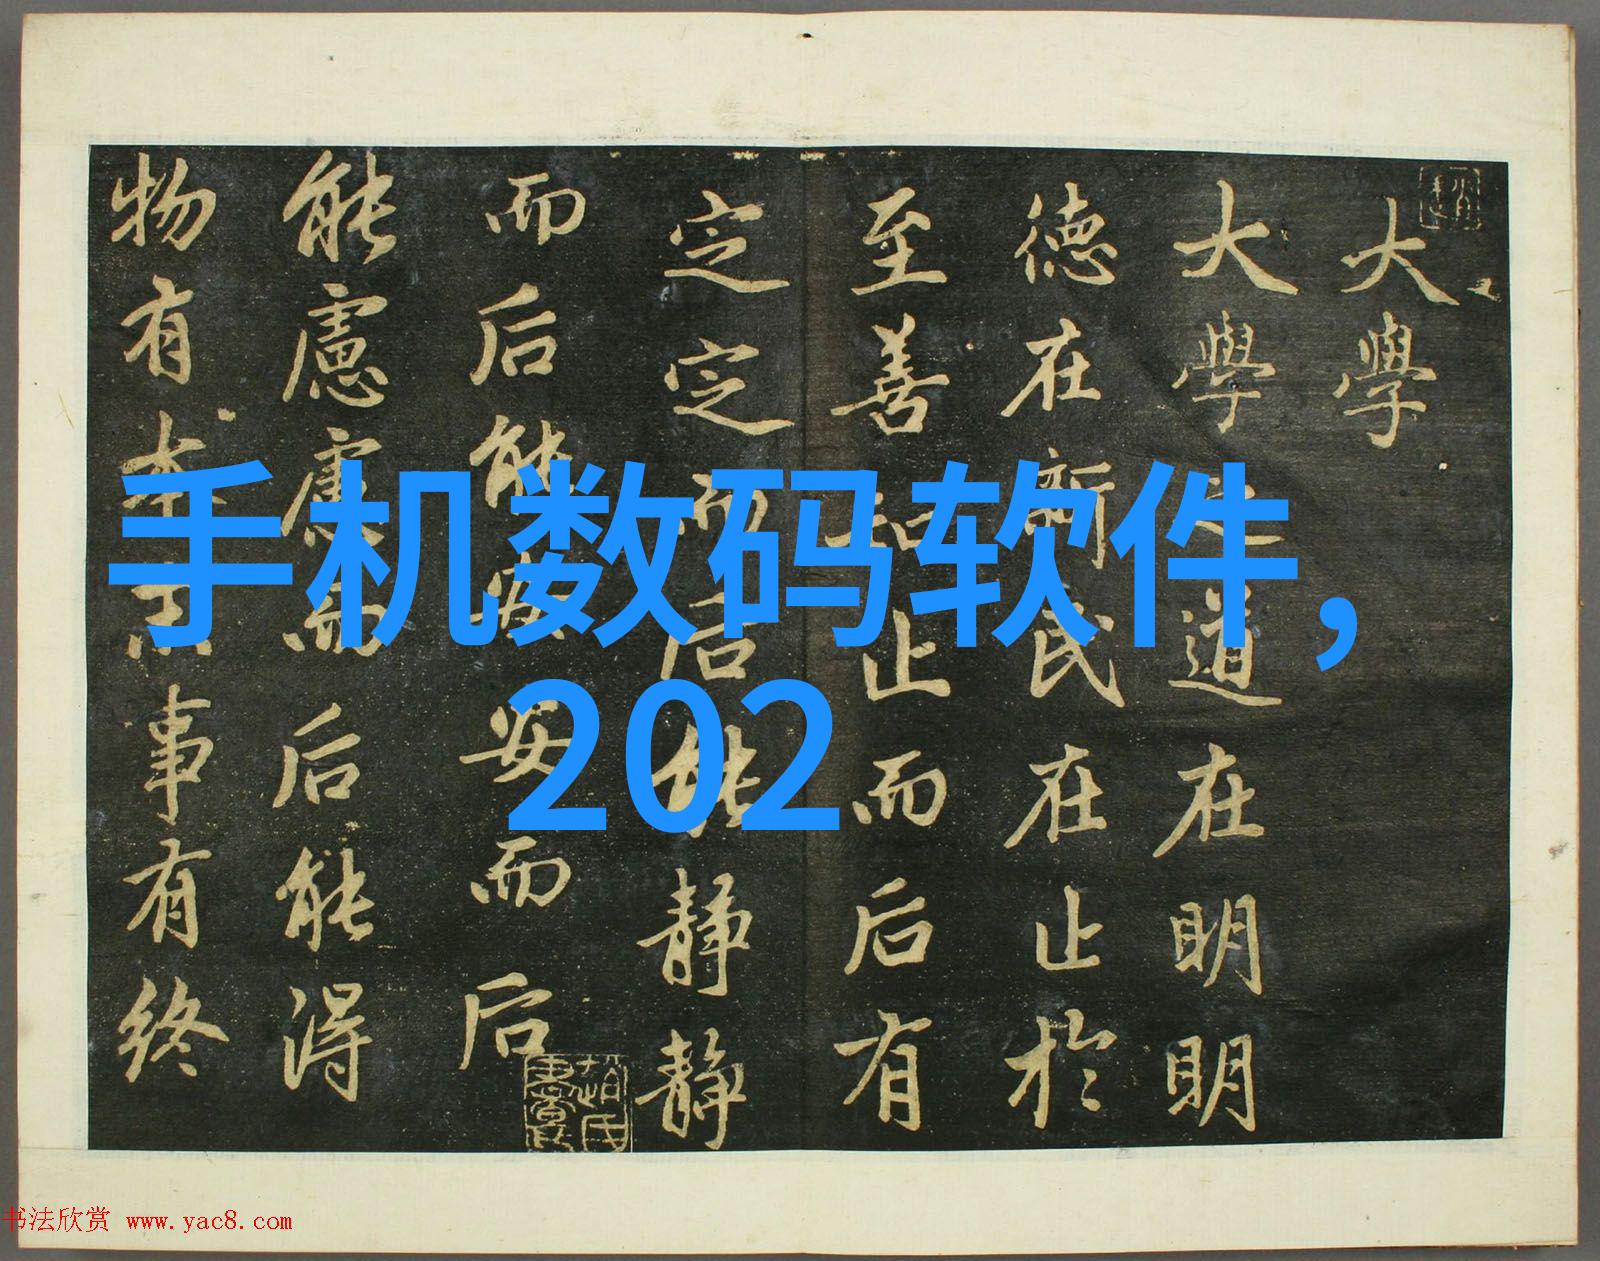 大學
大學之道在明明
德在新民在止於
至善知止而后有
定定而后能静静
而后能安安而后
能慮慮而后能得
物有本末事有终
手机数码软件，
202
书法欣赏 www.yac8.com